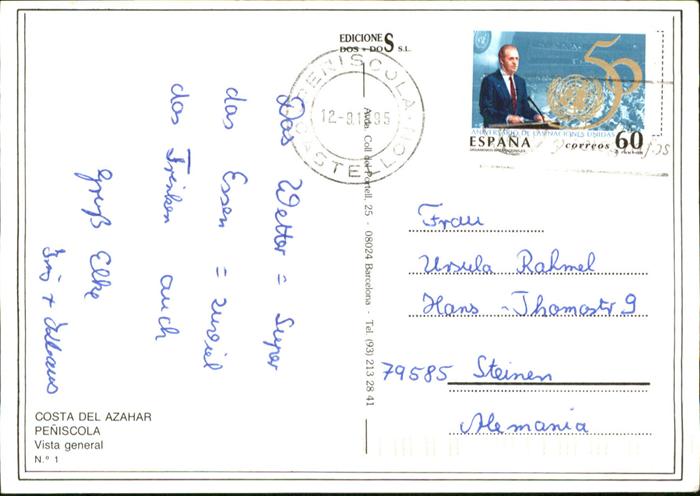 EDICIONES
DOS - DOS S.L.
PEÑISCOLA
12-9.1995
CASTELLON
50
ANIVERSARIO DE LAS NACIONES UNIDAS
ESPAÑA
correos 60
Das Wetter = Super
das Essen = zuviel
das Trinken auch
Gruß Elke
Avda. Coll del Portell, 25 - 08024 Barcelona - Tel. (93) 213 28 41
Frau
Ursula Rahmel
Hans-Thomastr 9
79585 Steinen
Alemania
COSTA DEL AZAHAR
PEÑISCOLA
Vista general
N.º 1